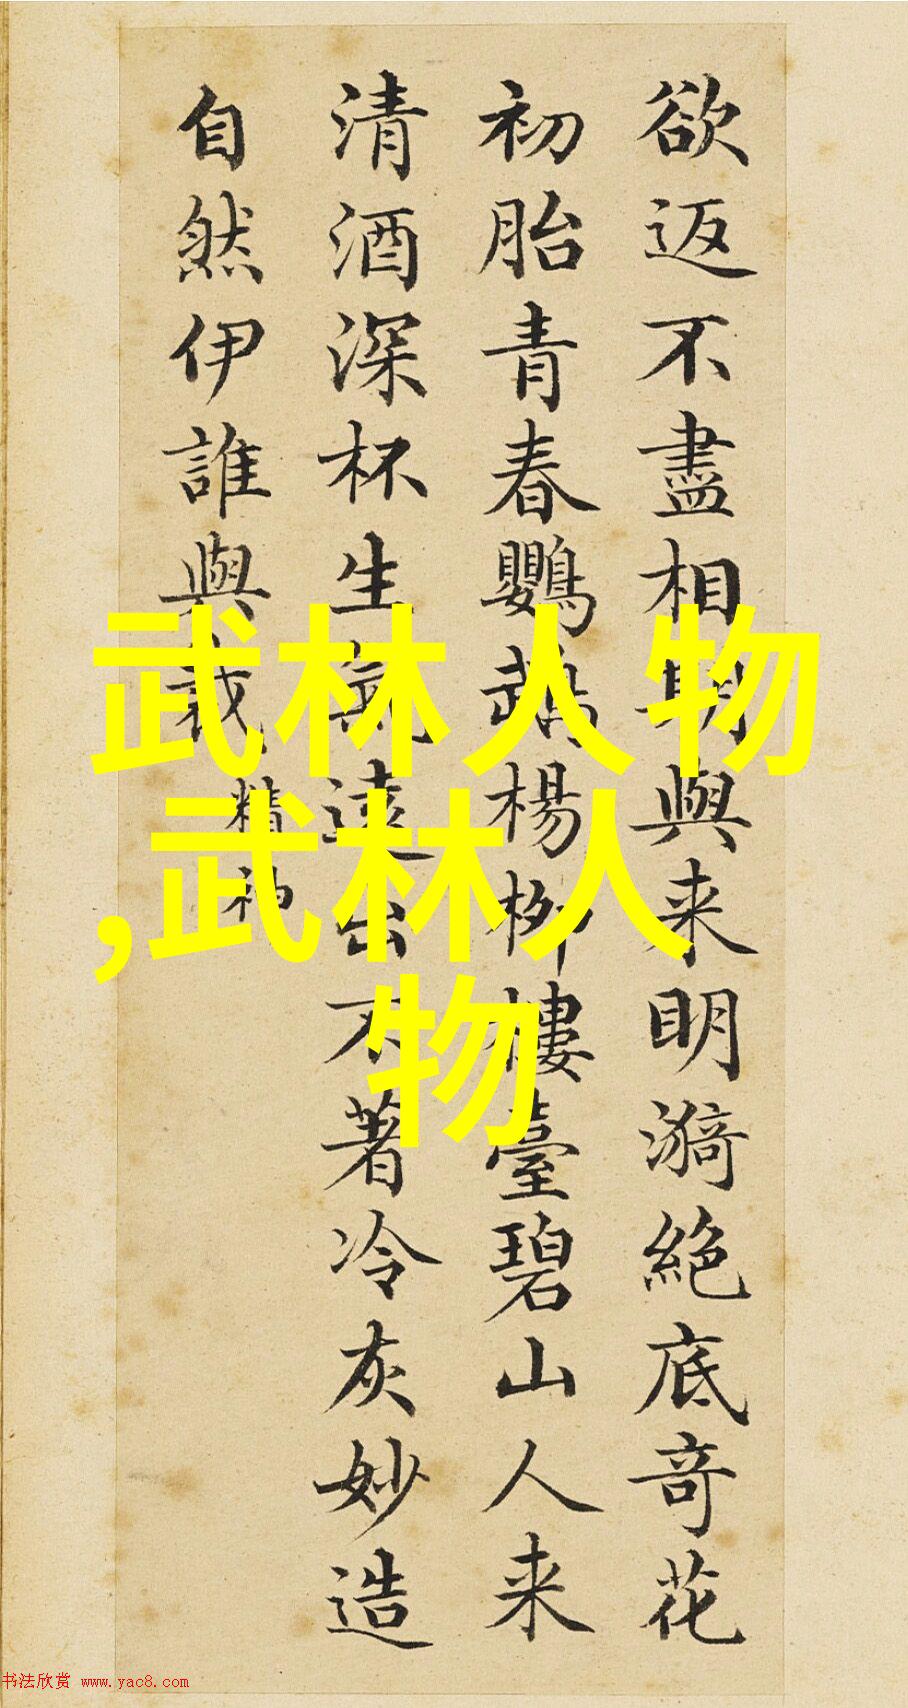 欲返不盡相期與来明漪絶底奇花
初胎青春鸚鵡楊柳樓臺碧山人来
清酒深杯生氣遠出不著冷灰妙造
自然伊誰與裁 精神
武林人物
,武林人
物
书法欣赏 www.yac8.com